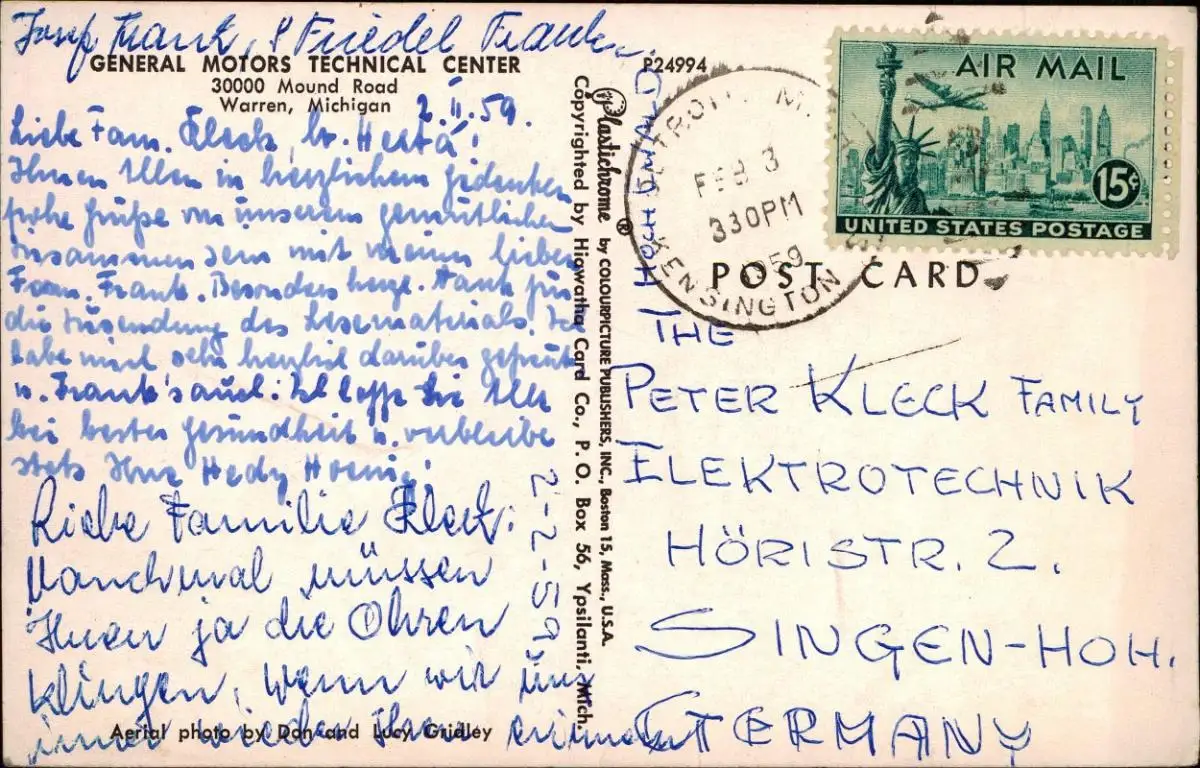 Josef Frank, & Friedel Frank
GENERAL MOTORS TECHNICAL CENTER
30000 Mound Road
Warren, Michigan
2.II.59.
Liebe Fam. Kleck, Herta!
Ihnen Allen in herzlichem gedenken
frohe Grüße von unserem gemütlichen
Zusammen sein mit meinen lieben
Fam. Frank. Besonders herzl. Dank für
die Zusendung des Lesematerials. Ich
habe mich sehr herzlich darüber gefreut
u. Frank's auch. Ich hoffe Sie Alle
bei bester Gesundheit u. verbleibe
stets Ihre Hedy Hoenig.
Liebe Familie Kleck:
Manchmal müssen
Ihnen ja die Ohren
klingen, wenn wir uns
immer wieder Ihrer erinnern
Aerial photo by Don and Lucy Gridley
2-2-59
Plastichrome ® by COLOURPICTURE PUBLISHERS, INC., Boston 15, Mass., U.S.A.
Copyrighted by Hiawatha Card Co., P. O. Box 56, Ypsilanti, Mich.
P24994
DETROIT, M
FEB 3
330PM
1959
KENSINGTON
AIR MAIL
15¢
UNITED STATES POSTAGE
POST CARD
THE
PETER KLECK FAMILY
ELEKTROTECHNIK
HÖRISTR. 2.
SINGEN-HOH.
GERMANY